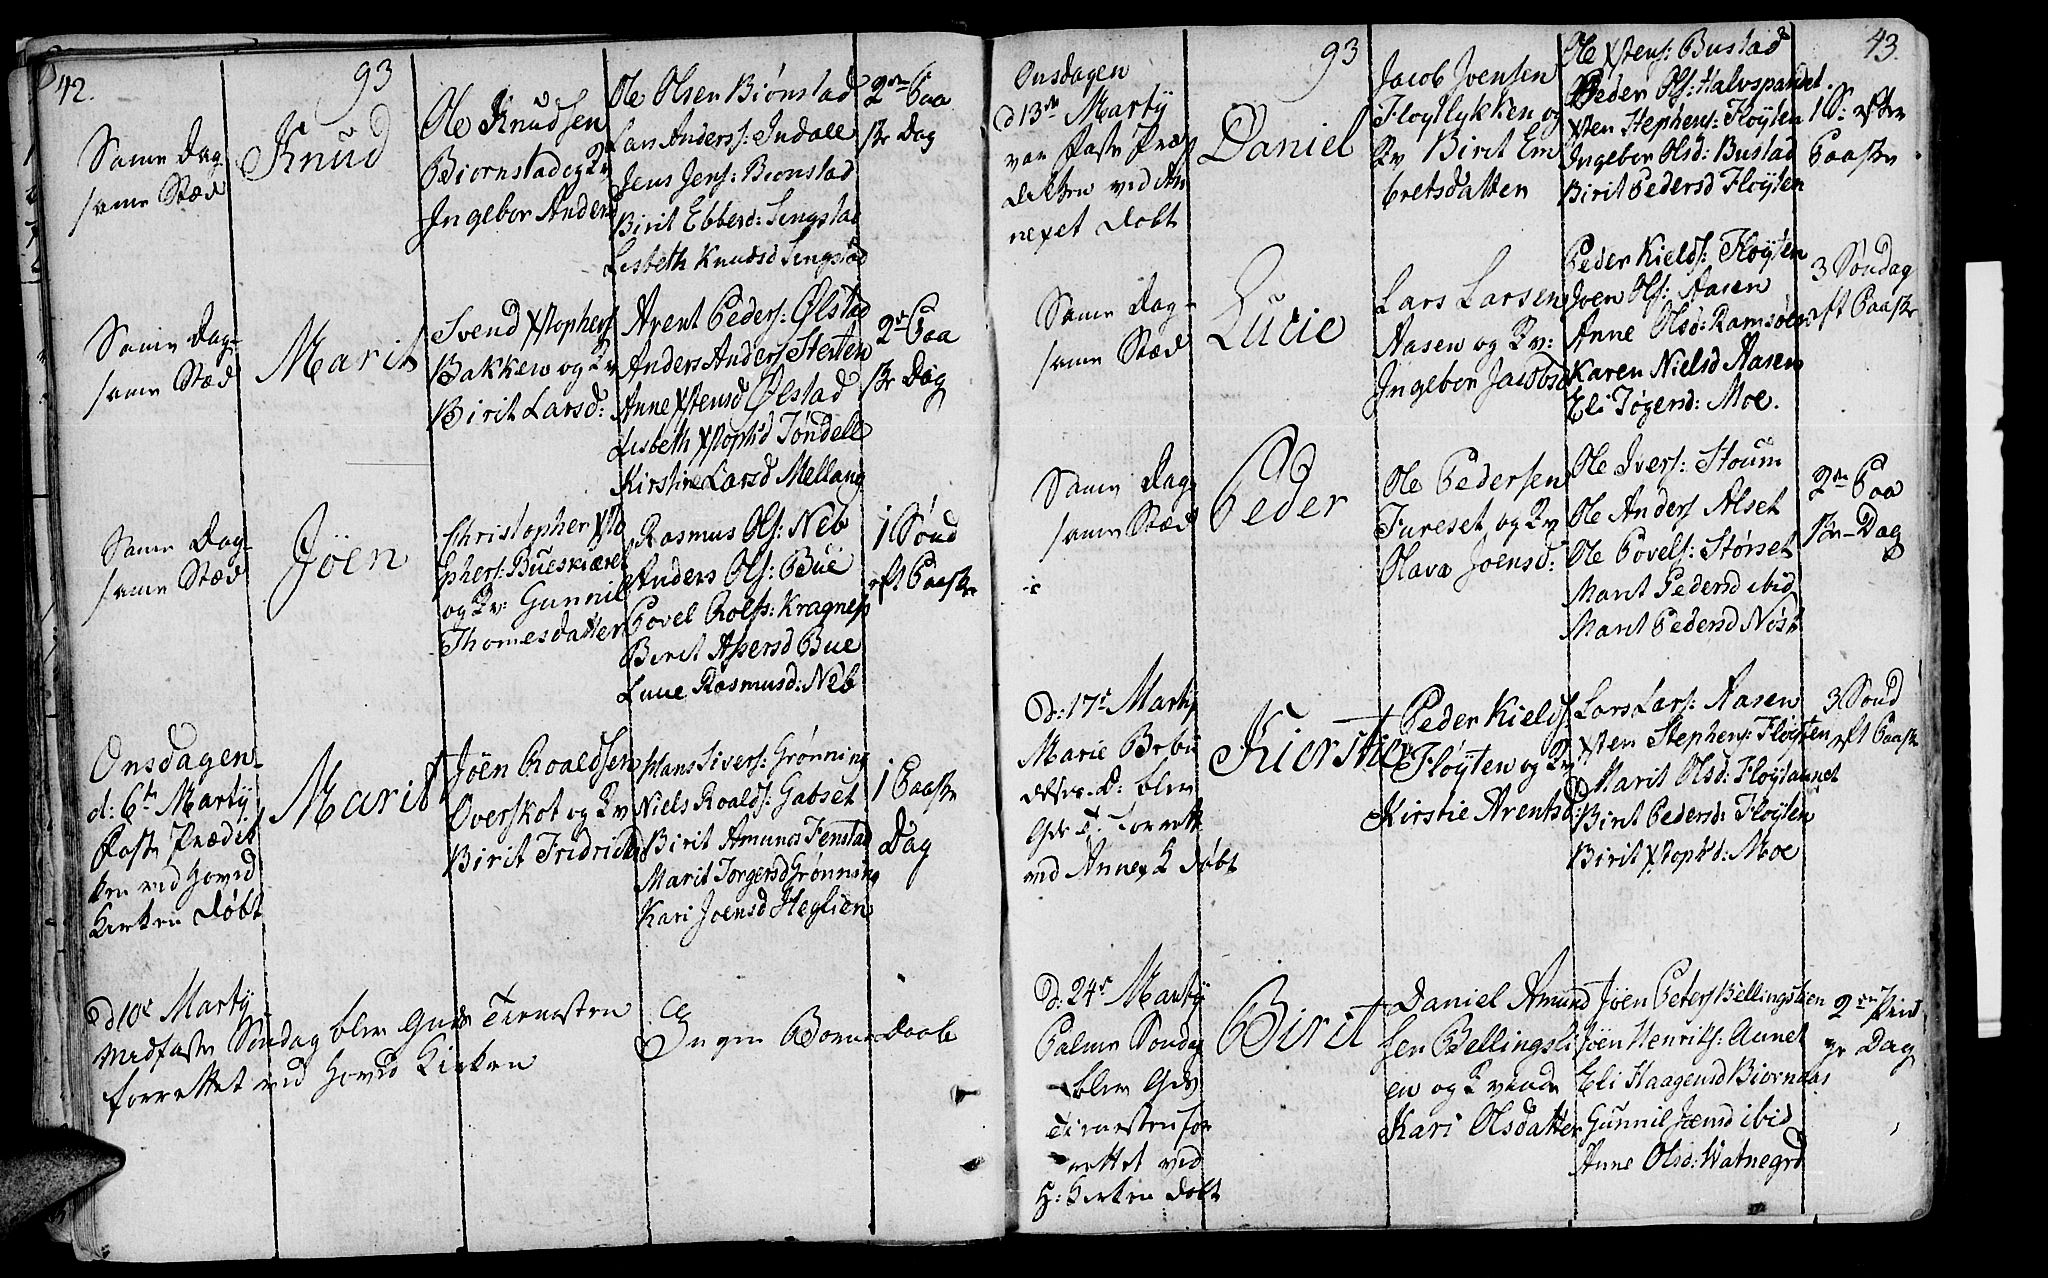 42.
93
Same Dag
same Stæd
Knud
Ole Knudsen
Biornstad og Kv
Ingebor Anders
Ole Olsen Biønstad
Lars Anders: Indall
Jens Jens: Bionstad
Birit Ebbersd: Sengstad
Lisbeth Knudsd Sengstad
2en Paa
ske Dag
Same Dag
same Stæd
Marit
Svend Xstophers
Bakken og Kv
Birit Larsd:
Arent Peders: Ølstad
Anders Anders Stenten
Anne Xstensd Ølstad
Lisbeth Xstophd Tøndell
Kirstine Larsd Mellang
2en Paa
ske Dag
Same Dag
same Stæd
Jöen
Christopher Xsto
phers: Bueskiæret
og Kv: Gunnil
Thomesdatter
Rasmus Ols: Neb
Anders Ols: Bue
Povel Rolfs: Kragnes
Birit Aspersd Bue
Rasmusd: Neb
1 Sønd
eft Paaske
Onsdagen
d: 6te Martÿ
Faste Prædik
ken ved Hoved
Kirken døbt
Marit
Jöen Roaldsen
Overskot og Kv
Birit Fridrichsd
Hans Sivers: Grønning
Niels Roalds: Gabset
Birit Amunds Fenstad
Marit Torgersd Grønning
Kari Joensd Heglien
1 Paaske
Dag
d 10de Martÿ
Midfaste Søndag blev Guds Tienesten
forrettet ved Hoved Kirken
Ingen Børne Daab
43.
93
Onsdagen
d 13de Martÿ
var Faste Præ
dikken ved An
nexet døbt
Daniel
Jacob Joensen
Floytlykken og
Kv Birit Em
bretsdatter
Ole Xstens: Bustad
Peder Ols: Halvspandet
Xsten Stephens: Fløyten
Ingebor Olsd: Bustad
Birit Pedersd Fløyten
1 S: efter
Paaske
Same Dag
same Stæd
Lucie
Lars Larsen
Aasen og Kv:
Ingebor Jacobsd
Peder Kields: Fløyten
Joen Ols: Aasen
Anne Olsd: Ramsøen
Karen Nielsd Aasen
Eli Jøgersd: Moe.
3 Søndag
eft Paaske
Same Dag
same Stæd
Peder
Ole Pedersen
Fureset og Kv
Olava Joensd:
Ole Ivers: Stoum
Ole Anders Alset
Ole Povels: Størset
Marit Pedersd ibid
Marit Pedersd Nøst
2en Paa
ske Dag
D: 17de Martÿ
Marie Bebu
delses D: blev
Gds T: forrett
ved Annext døbt
Kierstie
Peder Kields
Fløyten og Kv
Kirstie Arentsd:
Lars Lars: Aasen
Xsten Stephens: Fløyten
Marit Olsd: Fløytaunet
Birit Pedersd: Fløyten
Birit Xstophd: Moe
3 Sønd
eft Paaske
D: 24de Martÿ
Palme Søndag
blev Gds
Tienesten for
rettet ved
H: Kirken døbt
Birit
Daniel Amund
sen Bellingsli
en og Kvinde
Kari Olsdatter
Jöen Peters Bellingslien
Jöen Henriks: Aunet
Eli Haagensd Biørnaas
Gunnil Joensd ibid
Anne Olsd: Watnegrd
2en Pind
ze Dag